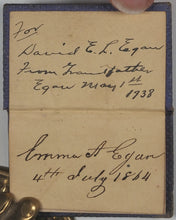 For
David E. L. Egan
From Grandfather
Egan May 1st
1938
Emma A Egan
4th July 1864